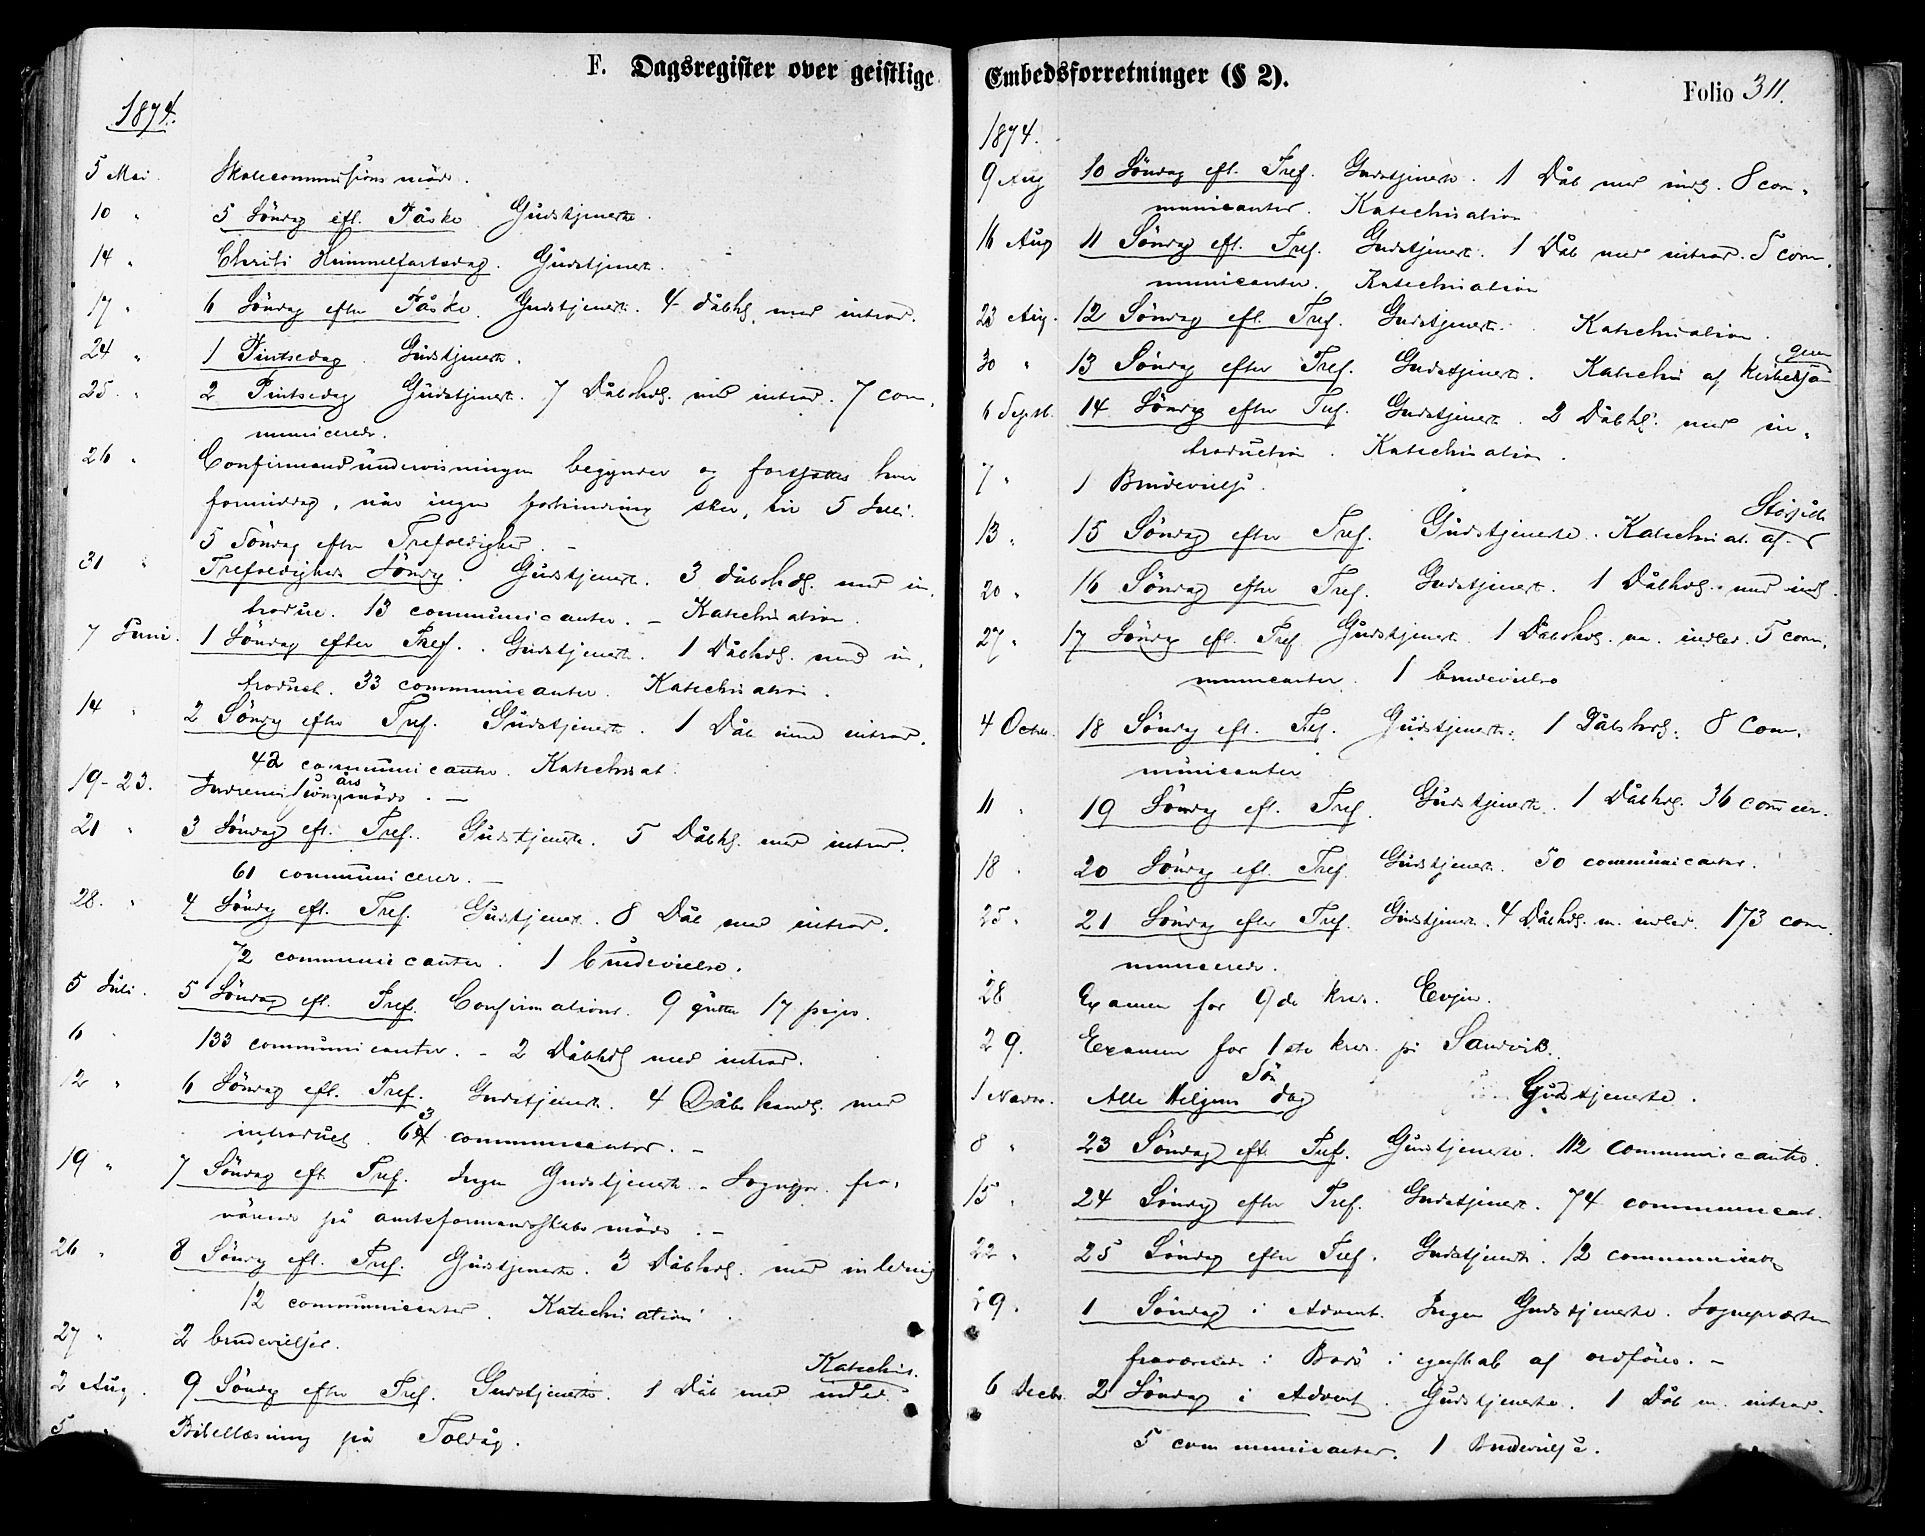 F. Dagsregister over geistlige
1874.
5 Mai. Skolecommissionsmöde.
10 " 5 Söndag eft. Påske Gudstjeneste.
14 " Christi Himmelfartsdag. Gudstjenest.
17 " 6 Söndag efter Påske. Gudstjenest. 4 dåbhdl. med introd.
24 " 1 Pintsedag. Gudstjeneste.
25. " 2 Pintsedag Gudstjenest. 7 Dåbshdl. med introd. 7 com.
municerede.
26 " Confirmandundervisningen begynder og fortsættes hver
formiddag, når ingen forhindring sker, til 5 Juli
5 Söndag efter Trefoldighed. –
31 " Trefoldigheds Söndg. Gudstjenest. 3 dåbshdl. med in-
troduc. 13 communicanter. – Katechisation.
7 Juni. 1 Söndag efter Tref. Gudstjenest. 1 Dåbhdl. med in-
troduct. 33 communicanter. Katechisation.
14 " 2 Söndg efter Tref. Gudstjenest. 1 Dåb med introd.
42 communicanter. Katechisat.
års
19-23. Indremissionsmöde. –
21 " 3 Söndag eft. Tref. Gudstjeneste. 5 Dåbhdl. med introd.
61 communicerer. –
28. " 4 Söndg eft. Tref. Gudstjenest. 8 Dåb med introd.
72 communicanter. 1 brudevielse.
5 Juli. 5 Söndag eft. Tref. Confirmation. 9 gutter 17 piger.
6 133 communicanter. – 2 Dåbhdl med introd.
12 " 6 Söndag eft. Tref. Gudstjenest. 4 Dåbshandl. med
introduct. 63 communicanter. –
19 " 7 Söndag eft. Tref. Ingen Gudstjeneste. Sognepr. fra-
værende på amtsformandskabsmöde. –
26 " 8 Söndg eft. Tref. Gudstjeneste. 3 Dåbhdl. med inledning
12 communicanter. Katechisation.
27 " 2 brudevielser.
Katechis.
2 Aug. 9 Söndg efter Tref. Gudstjeneste. 1 Dåb med indled.
5 " Bibellæsning på
Embedsforretninger (§ 2).
Folio 311.
1874.
9 Aug 10 Söndag eft. Tref. Gudstjeneste. 1 Dåb med indl. 8 com-
municanter. Katechisation
16 Aug 11 Söndag eft. Tref. Gudstjenest. 1 Dåb med introd. 5 com.
municanter. Katechisation
23 Aug. 12 Söndag eft. Tref. Gudstjenest. Katechisation.
30 " 13 Söndag efter Tref. Gudstjenest. Katechis af
6 Septb. 14 Söndag efter Tref. Gudstjenest. 2 Dåbhl. med in-
troduction. Katechisation.
7 " 1 Brudevielse.
13 " 15 Söndag efter Tref. Gudstjeneste. Katechisat. af
20 " 16 Söndag efter Tref. Gudstjenest. 1 Dåbhdl. med indl.
27 " 17 Söndg eft. Tref. Gudstjenest 1 Dåbshdl. m. indled. 5 com.
municanter. 1 brudevielse
4 Octbr. 18 Söndg eft. Tref. Gudstjeneste. 1 Dåbshdl. 8 Com.
municanter
11 " 19 Söndag eft. Tref. Gudstjenest. 1 Dåbhdl. 36 commcer.
18 " 20 Söndag eft. Tref. Gudstjenest. 50 communicanter.
25 " 21 Söndag efter Tref. Gudstjenest. 4 Dåbhdl. m. indled. 173 com.
municerede.
28 Examen for 9de kreds. Evjen.
29. Examen for 1ste kreds. på Sandvik.
Sön
1 Novbr. Alle Helgens dag Gudstjeneste.
8 " 23 Söndag eft. Tref. Gudstjeneste. 112 communicanter.
15 " 24 Söndag efter Tref. Gudstjenest. 74 communicant.
22 " 25 Söndag efter Tref. Gudstjenest. 12 communicanter
29. 1 Söndag i Advent. Ingen Gudstjeneste. Sognepræsten
fraværende i Bodö i egenskab af ordförer. –
6 Decbr. 2 Söndag i Advent. Gudstjeneste. 1 Dåb m. introd.
5 communicanter. 1 Brudevielse.